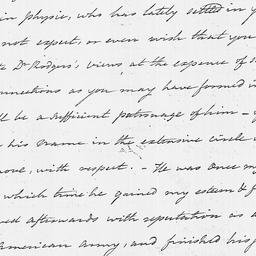 in physic, who has lately settled in y
not expect, or even wish that you
Dr Rodgers' views at the expense of
onnections as you may have formed i
ll be a sufficient patronage of him –
his name in the extensive circle
ove, with respect. – He was once my
which time he gained my esteem & f
ed afterwards with reputation as a
American army, and finished his